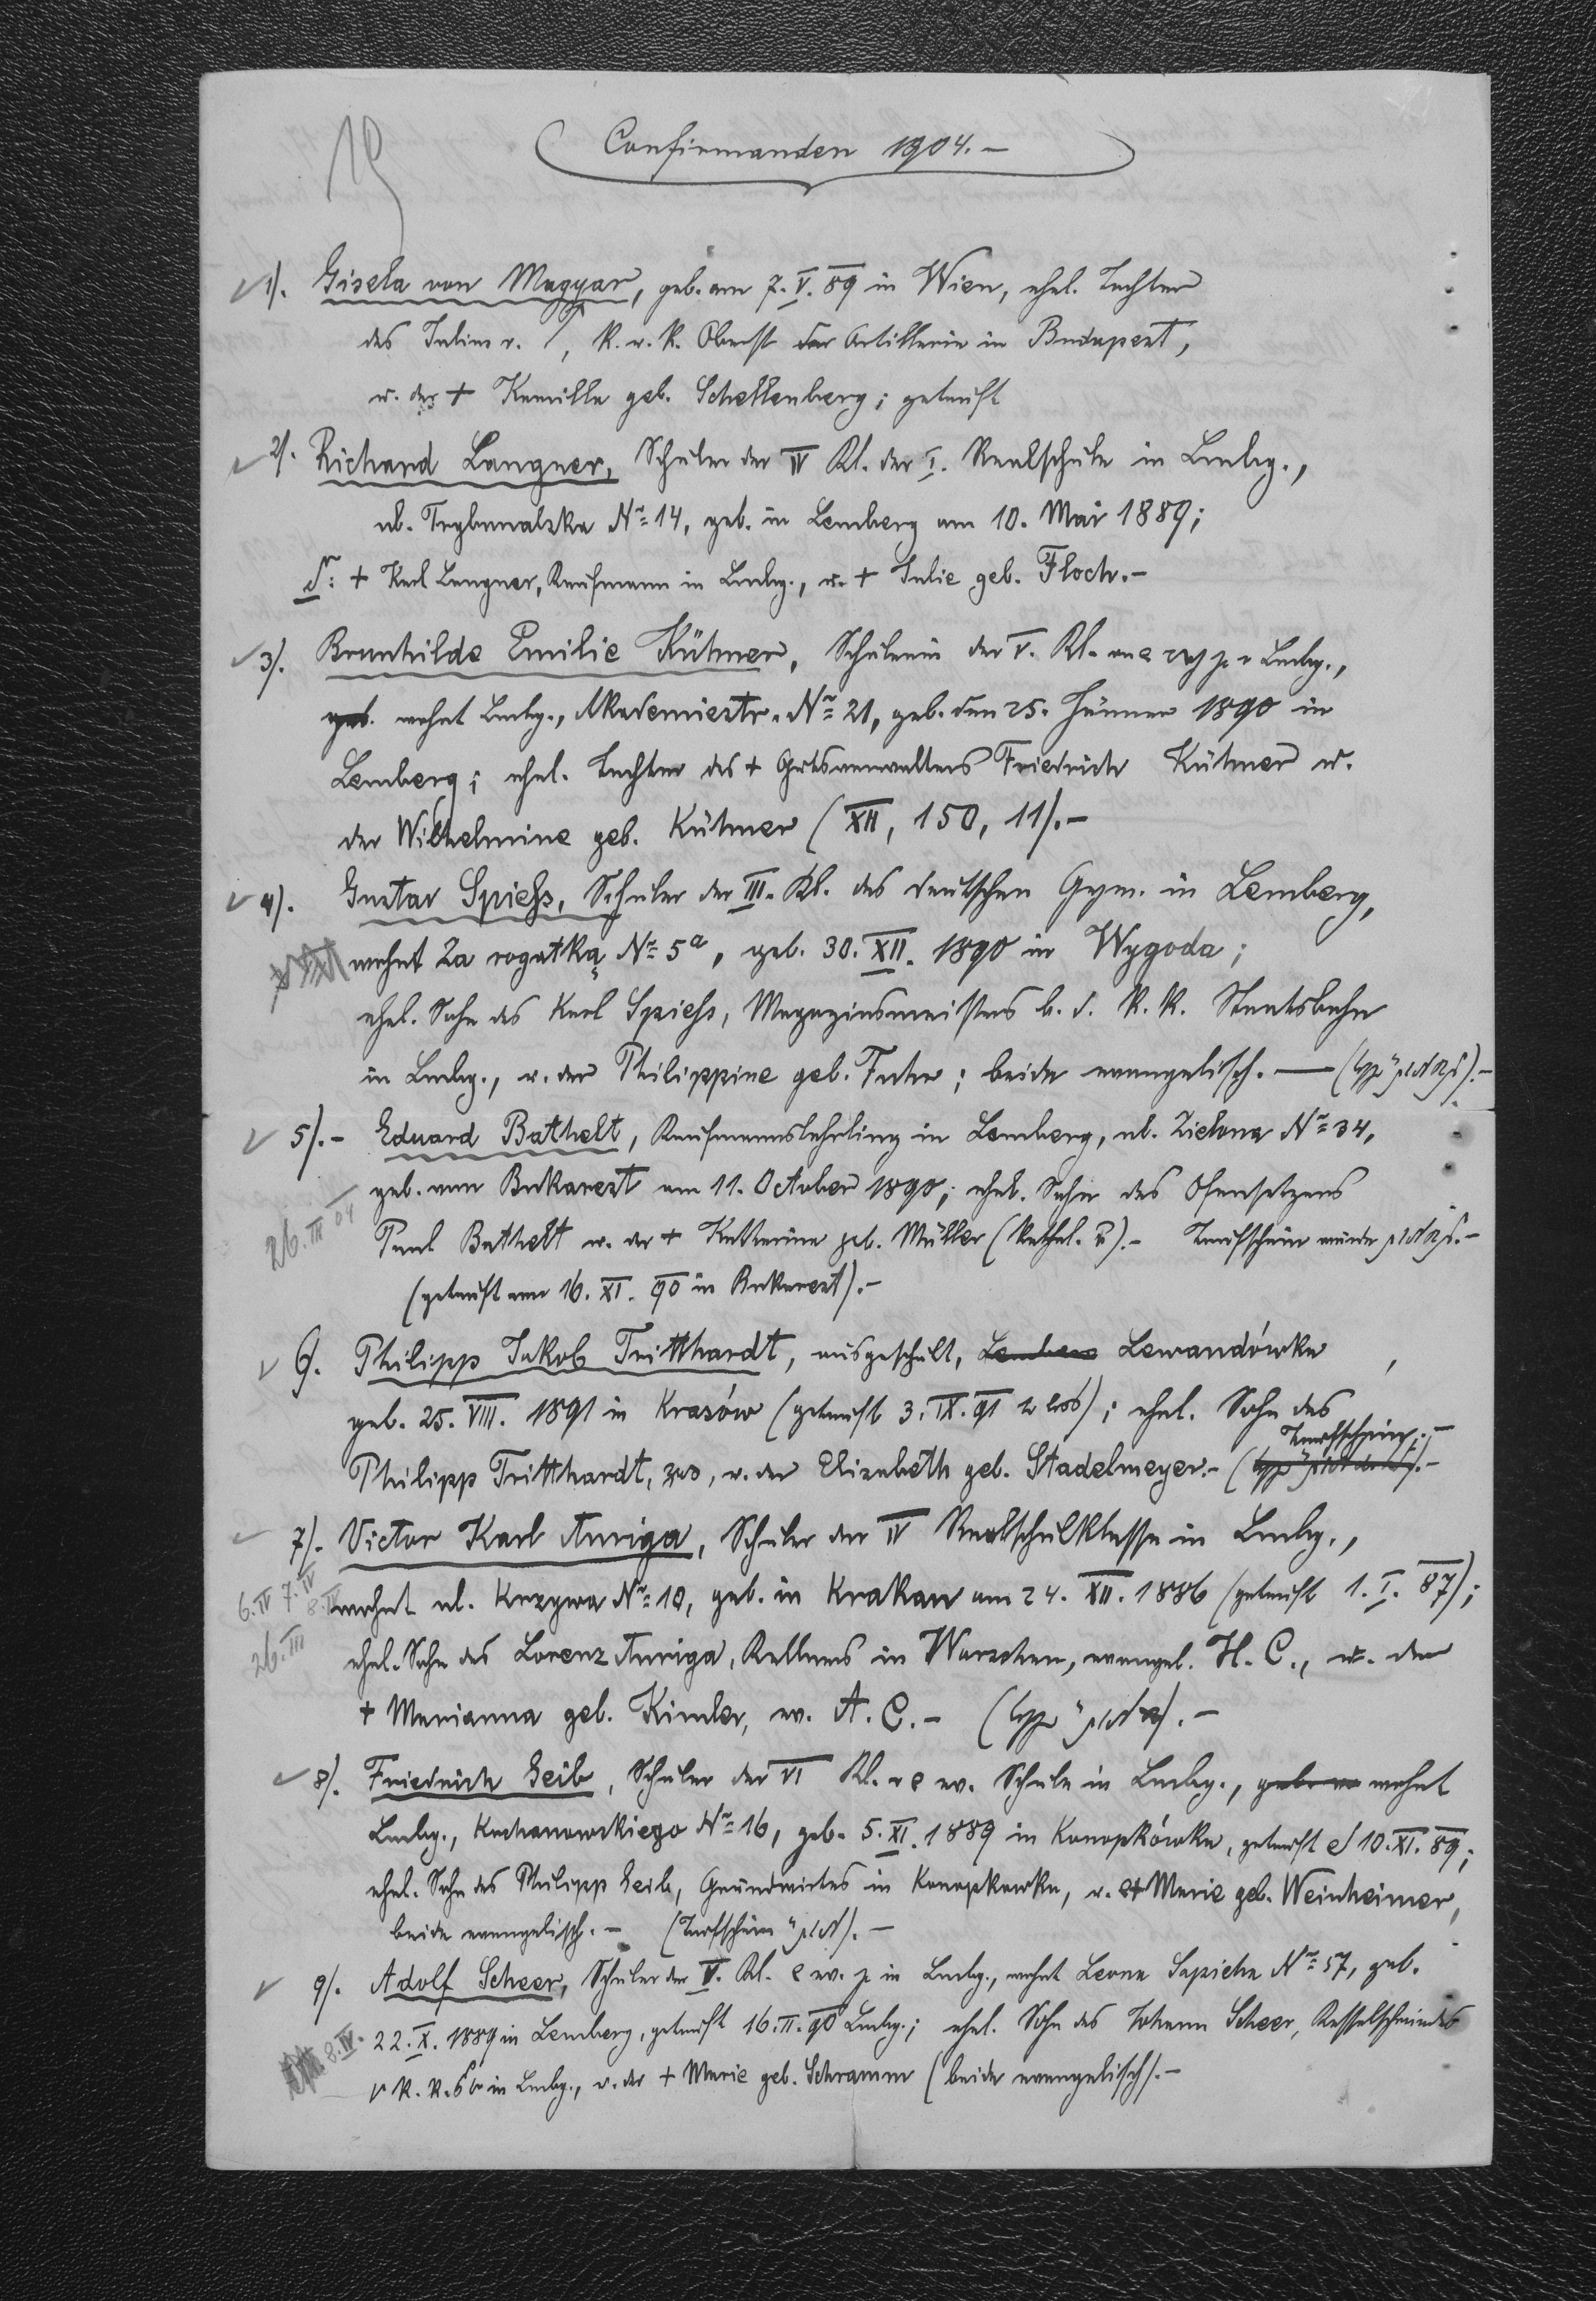 19
Confirmanden 1904.-
1). Gisela von Magyar, geb. am 7. V. 89 in Wien, ehel. Tochter
des Julius v. M, k. u. k. Oberst der Artillerie in Budapest,
u. der + Kamilla geb. Schellenberg; getauft
2). Richard Langner, Schüler der IV Kl. der I. Realschule in Lmbg.,
ul. Trybunalska No 14, geb. in Lemberg am 10. Mai 1889;
S: + Karl Langner, Kaufmann in Lmbg., u. + Julie geb. Floch.-
3). Brunhilde Emilie Kütner, Schülerin der V. Kl. Lmbg.,
geb. wohnt Lmbg., Akademiestr. No 21, geb. den 25. Jänner 1890 in
Lemberg; ehel. Tochter des + Gutsverwalters Friedrich Kütner u.
der Wilhelmine geb. Kütner (XII, 150, 11).-
4). Gustav Spiess, Schüler der III. Kl. des deutschen Gym. in Lemberg,
wohnt Za rogatką No 5a, geb. 30. XII. 1890 in Wygoda;
ehel. Sohn des Karl Spiess, Magazinsmeisters b. d. k. k. Staatsbahn
in Lmbg., u. der Philippine geb. ; beide evangelisch. —
5).- Eduard Bathelt, Kaufmannslehrling in Lemberg, ul. Zielona No 34,
geb. Bukarest am 11. October 1890; ehel. Sohn des Ofensetzers
26. III 04
Paul Bathelt u. der + Katherine geb. Müller (kathol. ).- Taufschein wurde
(getauft am 16. XI. 90 in Bukarest).-
6). Philipp Jakob Tritthardt, ausgeschult, Lewandówka,
geb. 25. VIII. 1891 in Krasów (getauft 3. IX. 91 ); ehel. Sohn des
Taufschein.-
Philipp Tritthardt, u. der Elisabeth geb. Stadelmeyer.-
7). Victor Karl Auriga, Schüler der IV Realschulklasse in Lmbg.,
6. IV 7. IV 8. IV
wohnt ul. Krzywa No 10, geb. in Krakau am 24. XII. 1886 (getauft 1. I. 87);
26. III
ehel. Sohn des Lorenz Auriga, Kellners in Warschau, evangel. H. C., u. der
+ Marianna geb. Kimler, ev. A. C.-
8). Friedrich Geib, Schüler der VI Kl. ev. Schule in Lmbg., wohnt
Lmbg., Kochanowskiego No 16, geb. 5. XI. 1889 in Konopkówka, getauft 10. XI. 89;
ehel. Sohn des Philipp Geib, Grundwirtes in Konopkowka, u. + Marie geb. Weinheimer,
beide evangelisch.- (Taufschein ).-
9). Adolf Scheer, Schüler der V. Kl. ev. in Lmbg., wohnt Leona Sapieha No 57, geb.
8. IV.
22. X. 1889 in Lemberg, getauft 16. II. 90 Lmbg.; ehel. Sohn des Johann Scheer, Kesselschmiedes
k. k. in Lmbg., u. der + Marie geb. Schramm (beide evangelisch).-